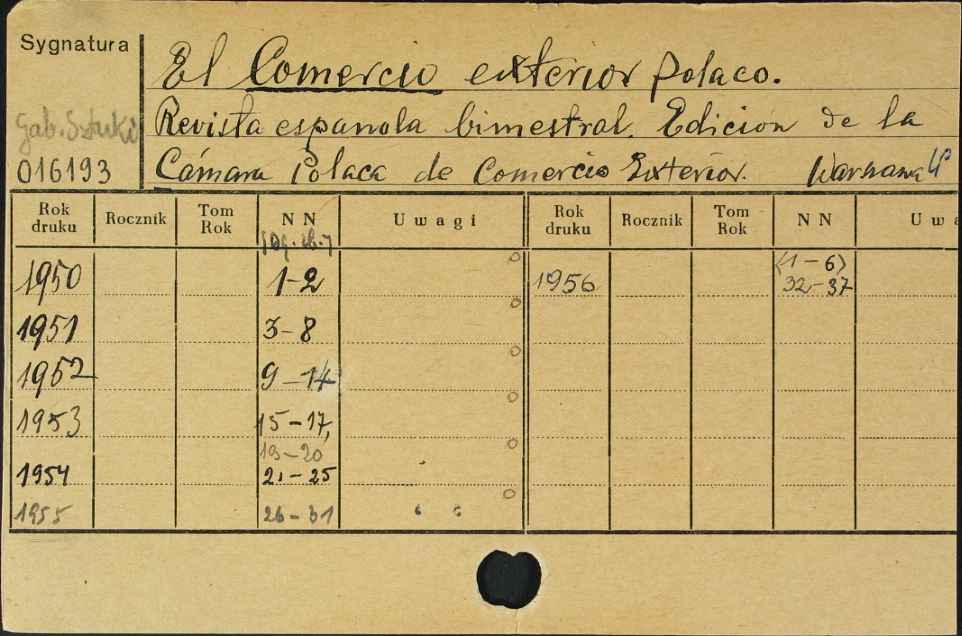 Sygnatura
El Comercio exterior polaco.
Gab. Sztuki
Revista espanola bimestral. Edicion de la
016193
Cámara Polaca de Comercio Exterior. Warszawa
Rok druku Rocznik Tom Rok NN Uwagi Rok druku Rocznik Tom Rok NN Uwa
1950 1-2 1956 (1-6) 32-37
1951 3-8
1952 9-14
1953 15-17,
19-20
1954 21-25
1955 26-31